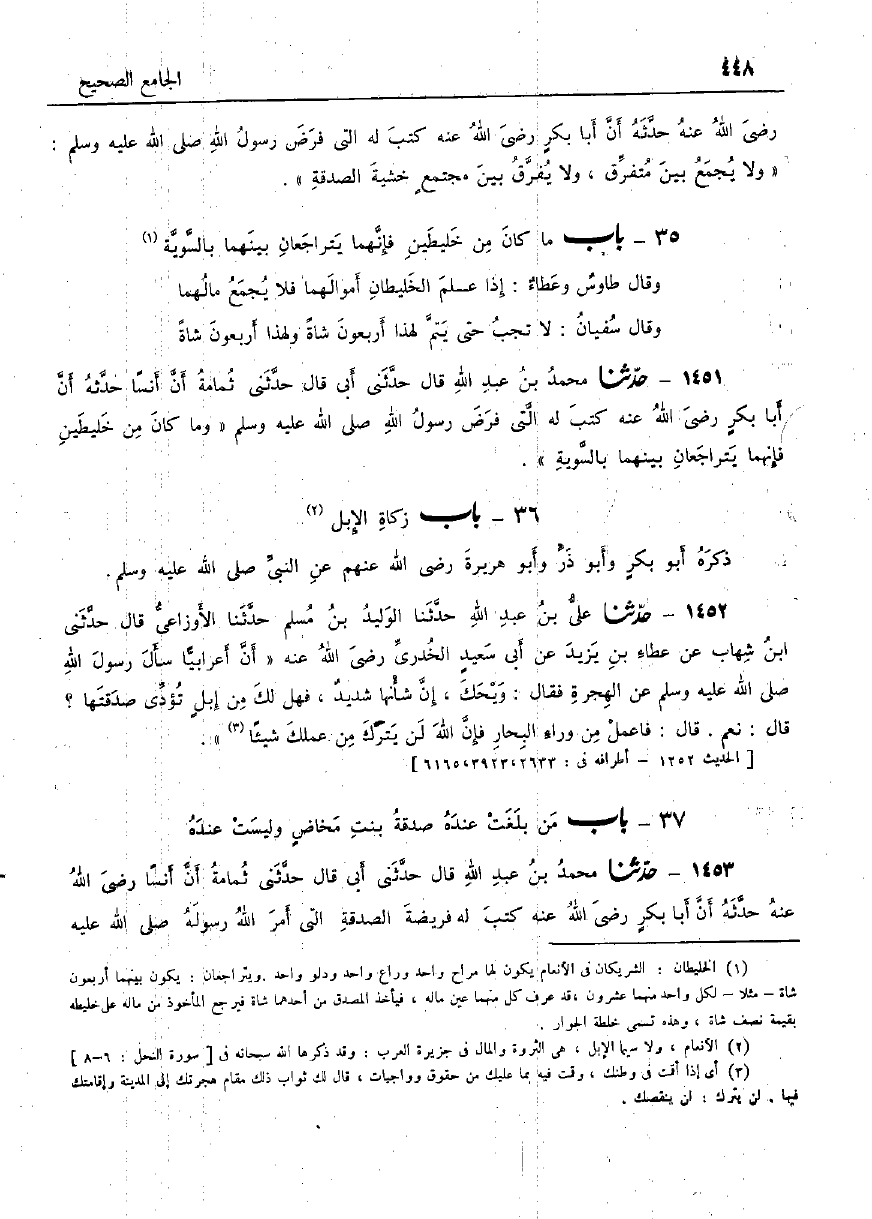 ٤٤٨
الجامع الصحيح
رضىَ اللهُ عنهُ حدَّثَهُ أنَّ أبا بكرٍ رضىَ اللهُ عنه كتبَ له التى فرَضَ رسولُ اللهِ صلى الله عليه وسلم :
« ولا يُجمَعُ بينَ مُتفرِّق ، ولا يُفرَّقُ بينَ مجتمعٍ خشيةَ الصدقةِ » .
٣٥ – باب ما كانَ مِن خَليطَينِ فإنَّهما يَتراجَعانِ بينَهما بالسَّويَّة (١)
وقال طاوسٌ وعَطاءٌ : إذا عسلمَ الخَليطانِ أموالَهما فلا يُجمَعُ مالُهما
وقال سُفيانُ : لا تجبُ حتى يَتمَّ لهذا أربعونَ شاةً ولهذا أربعونَ شاةً
١٤٥١ – حدّثنا محمدُ بنُ عبدِ اللهِ قال حدَّثَنى أبى قال حدَّثَنى ثُمامةُ أنَّ أنسًا حدَّثهُ أنَّ
أبا بكرٍ رضىَ اللهُ عنه كتبَ له الَّتى فرَضَ رسولُ اللهِ صلى الله عليه وسلم « وما كانَ مِن خَليطَينِ
فإنهما يَتراجَعانِ بينهما بالسَّويةِ » .
٣٦ – باب زكاةِ الإبل (٢)
ذكرَهُ أبو بكرٍ وأبو ذَرٍّ وأبو هريرةَ رضى الله عنهم عنِ النبىِّ صلى الله عليه وسلم .
١٤٥٢ – حدّثنا علىُّ بنُ عبدِ اللهِ حدَّثَنا الوَليدُ بنُ مُسلم حدَّثَنا الأوزاعىُّ قال حدَّثَنى
ابنُ شِهاب عن عطاءِ بنِ يَزيدَ عن أبى سَعيدٍ الخُدرىِّ رضىَ اللهُ عنه « أنَّ أعرابيًّا سألَ رسولَ اللهِ
صلى الله عليه وسلم عنِ الهِجرةِ فقال : وَيْحَكَ ، إنَّ شأنَها شديدٌ ، فهل لكَ مِن إبلٍ تُؤدِّى صدَقتَها ؟
قال : نعم . قال : فاعملْ مِن وراءِ البِحارِ فإنَّ اللهَ لَن يَترَكَ مِن عملكَ شيئًا (٣) » .
[ الحديث ١٢٥٢ – أطرافه فى : ٢٦٣٣،٣٩٢٣،٦١٦٥ ]
٣٧ – باب مَن بلَغَتْ عندَهُ صدقةُ بنتِ مَخاضٍ وليسَتْ عندَهُ
١٤٥٣ – حدّثنا محمدُ بنُ عبدِ اللهِ قال حدَّثَنى أبى قال حدَّثَنى ثُمامةُ أنَّ أنسًا رضىَ اللهُ
عنهُ حدَّثَهُ أنَّ أبا بكرٍ رضىَ اللهُ عنه كتبَ له فريضةَ الصدقةِ التى أمرَ اللهُ رسولَهُ صلى الله عليه
(١) الخليطان : الشريكان فى الأنعام يكون لها مراح واحد وراع واحد ودلو واحد . ويتراجعان : يكون بينهما أربعون
شاة – مثلا – لكل واحد منهما عشرون ، قد عرف كل منهما عين ماله ، فيأخذ المصدق من أحدهما شاة فيرجع المأخوذ من ماله على خليطه
بقيمة نصف شاة ، وهذه تسمى خلطة الجوار .
(٢) الأنعام ، ولا سيما الإبل ، هى الثروة والمال فى جزيرة العرب : وقد ذكرها الله سبحانه فى [ سورة النحل : ٦–٨ ]
(٣) أى إذا أقت فى وطنك ، وقت فيه بما عليك من حقوق وواجبات ، قال لك ثواب ذلك مقام هجرتك إلى المدينة وإقامتك
فيها . لن يترك : لن ينقصك .